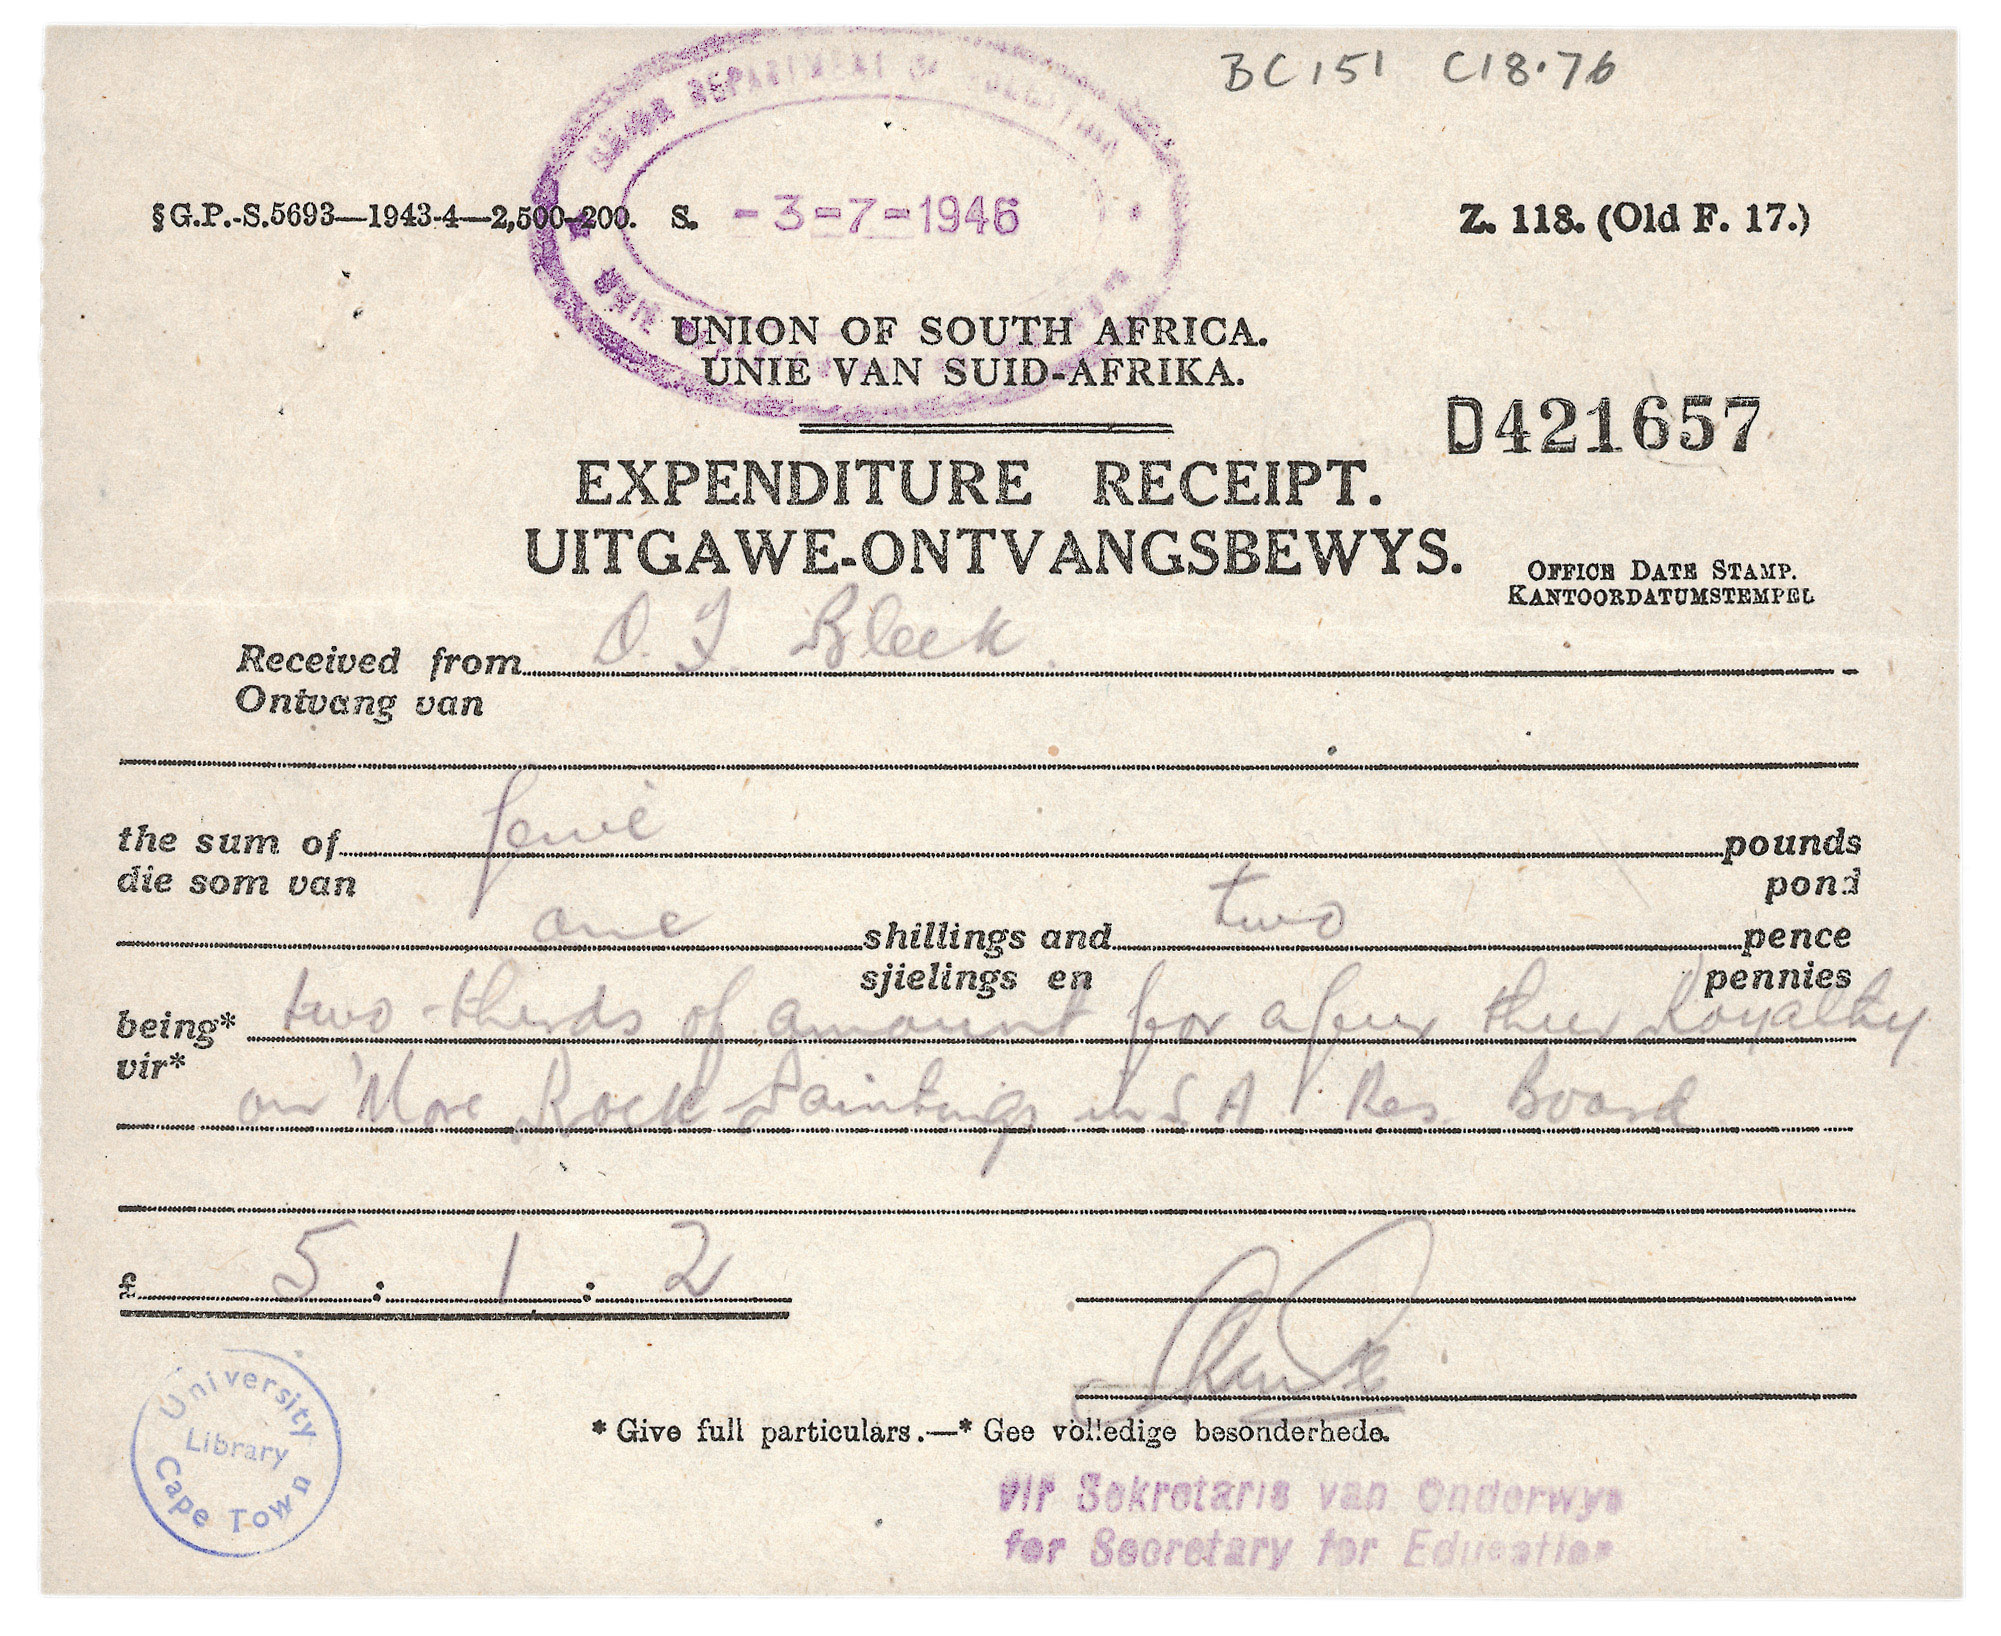 BC151 C18.76
UNION DEPARTMENT OF EDUCATION
§ G.P.-S.5693—1943-4—2,500-200. S.
-3-7-1946
Z. 118. (Old F. 17.)
UNION OF SOUTH AFRICA.
UNIE VAN SUID-AFRIKA.
D421657
EXPENDITURE RECEIPT.
UITGAWE-ONTVANGSBEWYS.
OFFICE DATE STAMP.
KANTOORDATUMSTEMPEL
Received from D. F. Bleek.
Ontvang van
the sum of five pounds
die som van pond
one shillings and two pence
sjielings en pennies
being* two-thirds of amount for Royalty
vir*
on "More Rock Paintings in S A. Res. Board
£ 5 : 1 : 2
* Give full particulars.—* Gee volledige besonderhede.
University Library Cape Town
vir Sekretaris van Onderwys
for Secretary for Education